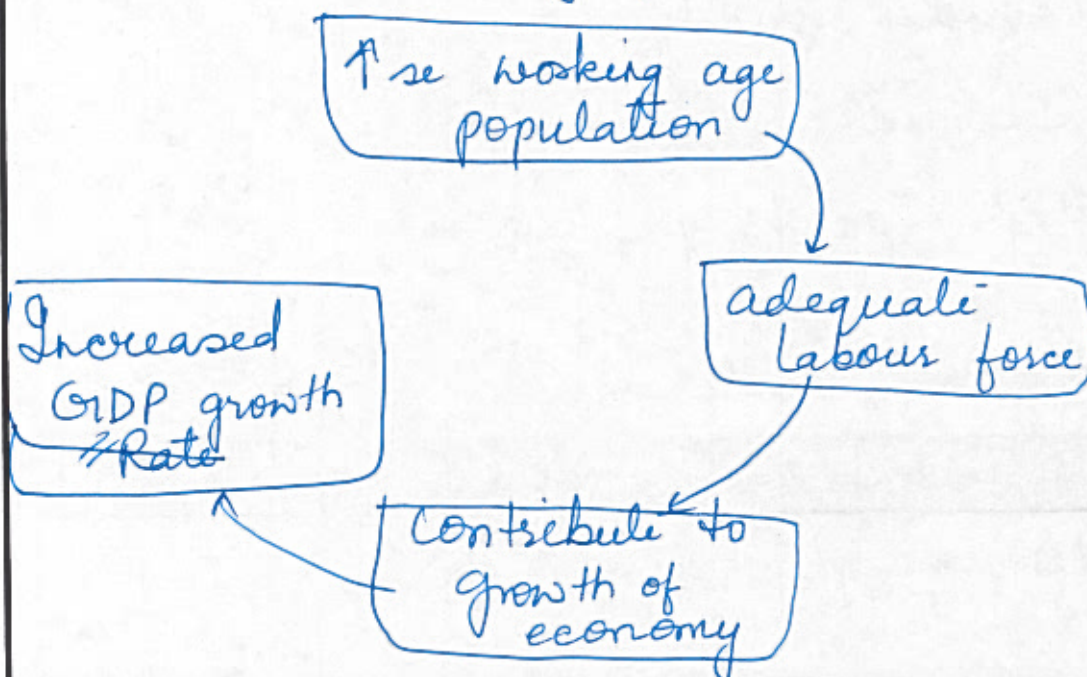 ↑se working age
population
adequate
labour force
contribute to
growth of
economy
Increased
GDP growth
Rate